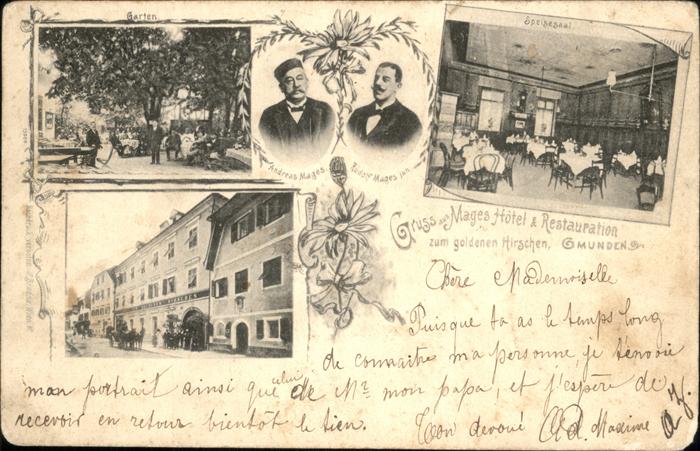 Garten
Speisesaal
Andreas Mages. Rudolf Mages jun.
Gruss aus Mages Hôtel & Restauration
zum goldenen Hirschen, GMUNDEN.
Chère Mademoiselle
Puisque ta as le temps long
de connaitre ma personne je t'envoie
mon portrait ainsi que celui de Mr. mon papa, et j'espère de
recevoir en retour bientôt le tien. Ton devoué Ad. Maxime